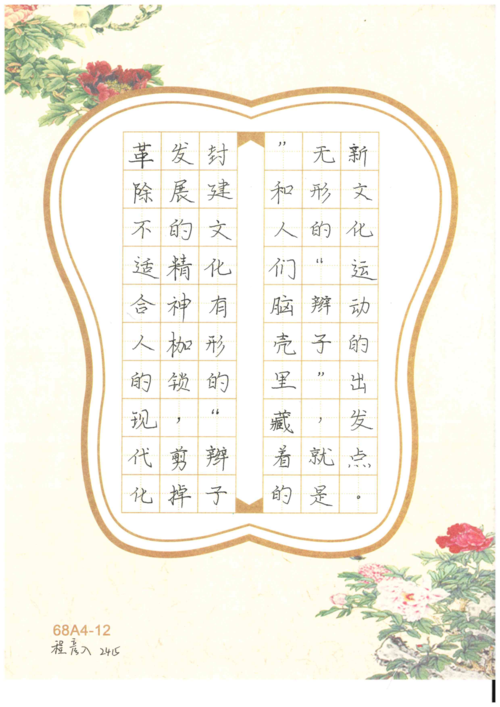 革除不适合人的现代化
发展的精神枷锁，剪掉
封建文化有形的“辫子
”和人们脑壳里藏着的
无形的“辫子”，就是
新文化运动的出发点。
68A4-12